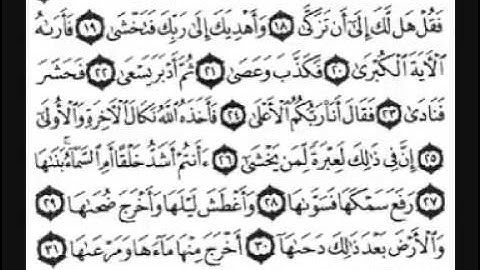 فَقُلْ هَل لَّكَ إِلَىٰٓ أَن تَزَكَّىٰ ١٨ وَأَهْدِيَكَ إِلَىٰ رَبِّكَ فَتَخْشَىٰ ١٩ فَأَرَىٰهُ
ٱلْأَيَةَ ٱلْكُبْرَىٰ ٢٠ فَكَذَّبَ وَعَصَىٰ ٢١ ثُمَّ أَدْبَرَ يَسْعَىٰ ٢٢ فَحَشَرَ
فَنَادَىٰ ٢٣ فَقَالَ أَنَا۠ رَبُّكُمُ ٱلْأَعْلَىٰ ٢٤ فَأَخَذَهُ ٱللَّهُ نَكَالَ ٱلْأَخِرَةِ وَٱلْأُولَىٰٓ
٢٥ إِنَّ فِى ذَٰلِكَ لَعِبْرَةً لِّمَن يَخْشَىٰٓ ٢٦ ءَأَنتُمْ أَشَدُّ خَلْقًا أَمِ ٱلسَّمَآءُ ۚ بَنَىٰهَا
٢٧ رَفَعَ سَمْكَهَا فَسَوَّىٰهَا ٢٨ وَأَغْطَشَ لَيْلَهَا وَأَخْرَجَ ضُحَىٰهَا ٢٩
وَٱلْأَرْضَ بَعْدَ ذَٰلِكَ دَحَىٰهَآ ٣٠ أَخْرَجَ مِنْهَا مَآءَهَا وَمَرْعَىٰهَا ٣١